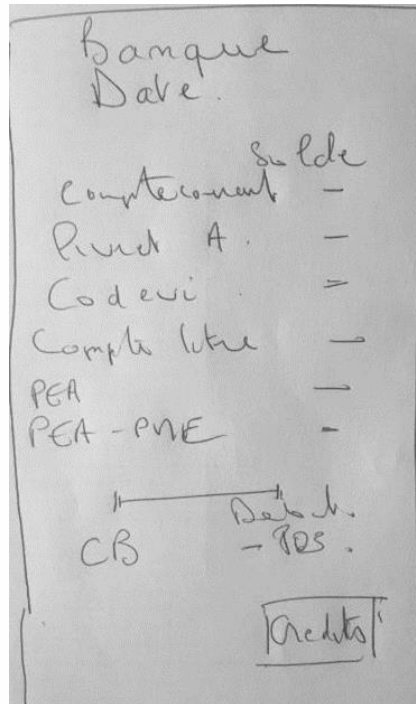 Banque
Date.
Solde
Compte courant -
Livret A. -
Codevi. =
Compte titre -
PEA -
PEA - PME -
CB
Crédits